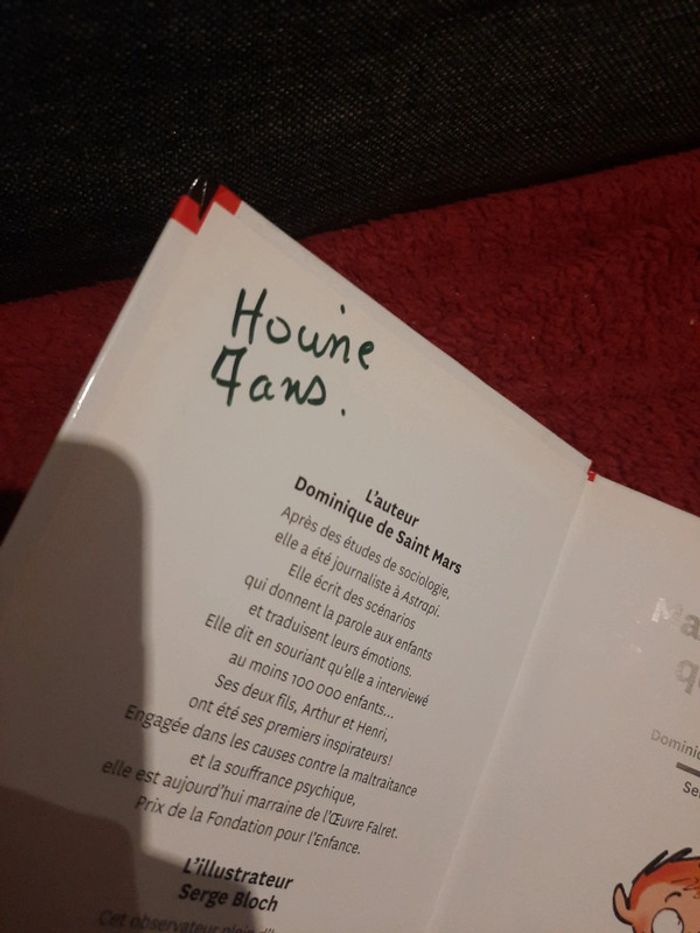 Houine
7 ans.
L'auteur
Dominique de Saint Mars
Après des études de sociologie,
elle a été journaliste à Astrapi.
Elle écrit des scénarios
qui donnent la parole aux enfants
et traduisent leurs émotions.
Elle dit en souriant qu'elle a interviewé
au moins 100 000 enfants...
Ses deux fils, Arthur et Henri,
ont été ses premiers inspirateurs!
Engagée dans les causes contre la maltraitance
et la souffrance psychique,
elle est aujourd'hui marraine de l'Œuvre Falret.
Prix de la Fondation pour l'Enfance.
L'illustrateur
Serge Bloch
Cet observateur plein d'
Ma
q
Dominiq
Se